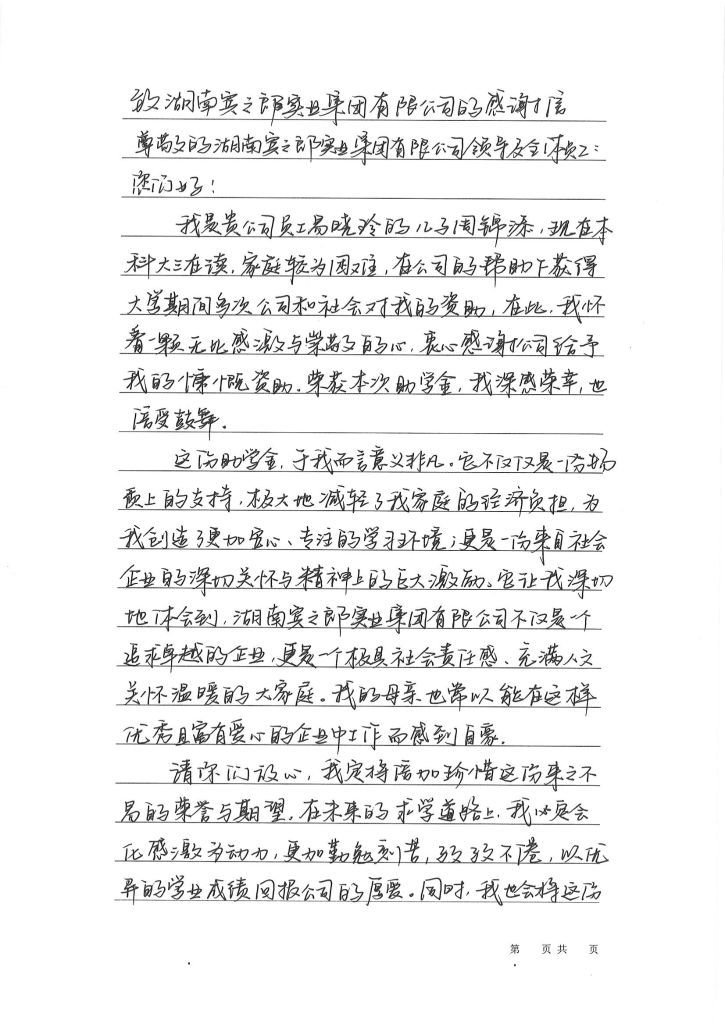 致湖南宾之郎实业集团有限公司的感谢信
尊敬的湖南宾之郎实业集团有限公司领导及全体员工:
您们好!
我是贵公司员工易晓玲的儿子周锦添,现在本
科大三在读,家庭较为困难,在公司的帮助下获得
大学期间多次公司和社会对我的资助,在此,我怀
着一颗无比感激与崇敬的心,衷心感谢公司给予
我的慷慨资助。荣获本次助学金,我深感荣幸,也
倍受鼓舞。
这份助学金,于我而言意义非凡。它不仅仅是一份物
质上的支持,极大地减轻了我家庭的经济负担,为
我创造了更加安心、专注的学习环境;更是一份来自社会
企业的深切关怀与精神上的巨大激励。它让我深切
地体会到,湖南宾之郎实业集团有限公司不仅是一个
追求卓越的企业,更是一个极具社会责任感、充满人文
关怀温暖的大家庭。我的母亲也常以能在这样
优秀且富有爱心的企业中工作而感到自豪。
请你们放心,我定将倍加珍惜这份来之不
易的荣誉与期望。在未来的求学道路上,我必定会
化感激为动力,更加勤勉刻苦,孜孜不倦,以优
异的学业成绩回报公司的厚爱。同时,我也会将这份
第 页 共 页